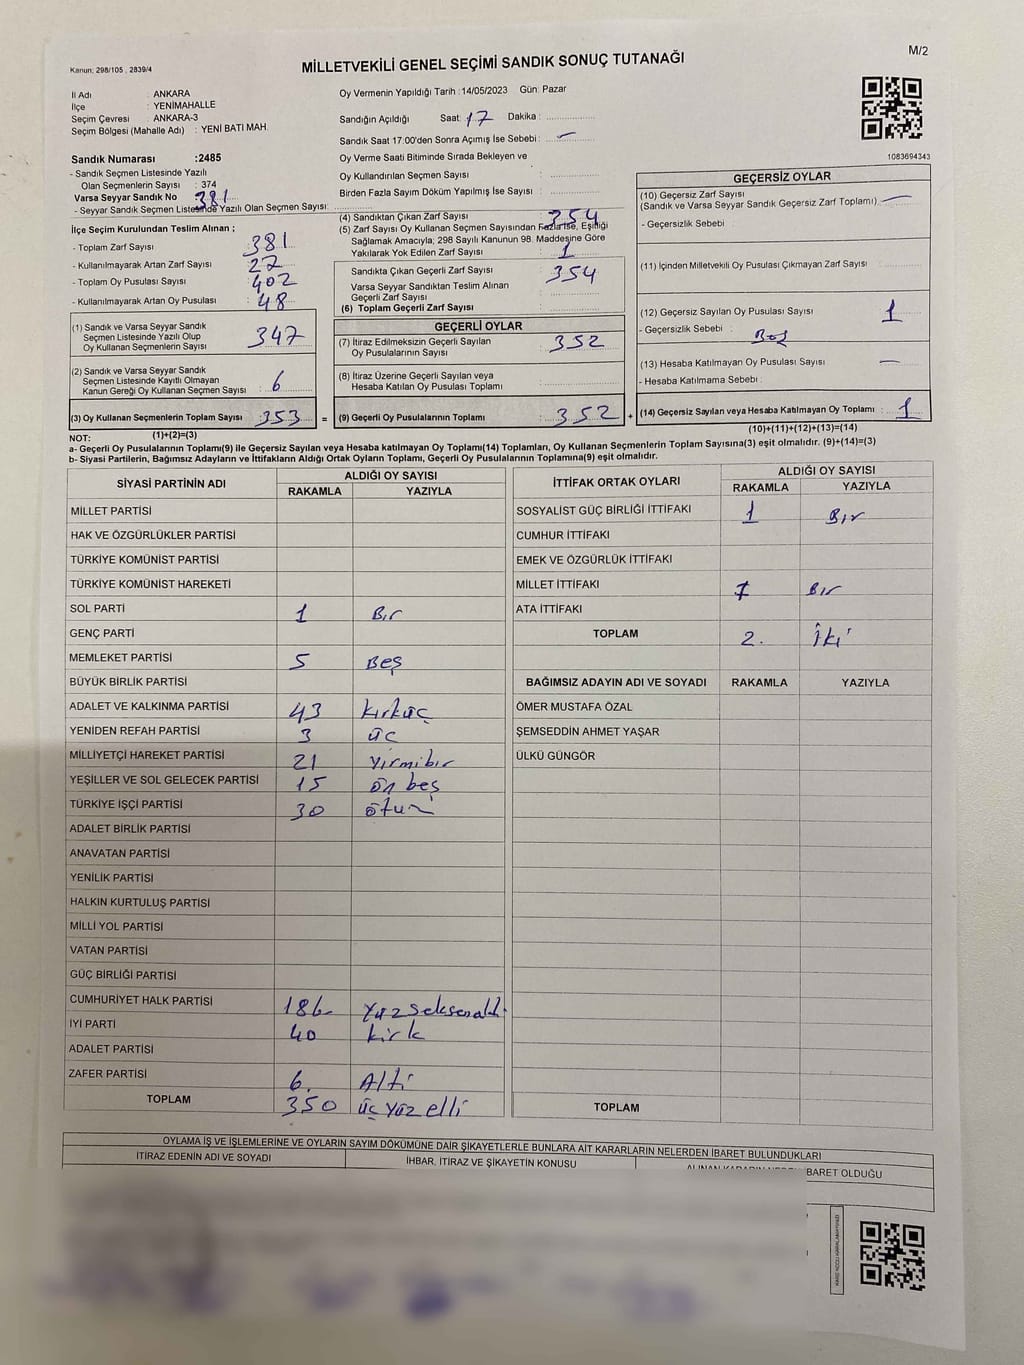 M/2
Kanun: 298/105 , 2839/4
MİLLETVEKİLİ GENEL SEÇİMİ SANDIK SONUÇ TUTANAĞI
İl Adı : ANKARA
İlçe : YENİMAHALLE
Seçim Çevresi : ANKARA-3
Seçim Bölgesi (Mahalle Adı) : YENİ BATI MAH.
Sandık Numarası :2485
- Sandık Seçmen Listesinde Yazılı
Olan Seçmenlerin Sayısı : 374
Varsa Seyyar Sandık No 381
- Seyyar Sandık Seçmen Listesinde Yazılı Olan Seçmen Sayısı:
İlçe Seçim Kurulundan Teslim Alınan ;
- Toplam Zarf Sayısı : 381
- Kullanılmayarak Artan Zarf Sayısı : 27
- Toplam Oy Pusulası Sayısı : 402
- Kullanılmayarak Artan Oy Pusulası : 48
(1) Sandık ve Varsa Seyyar Sandık
Seçmen Listesinde Yazılı Olup
Oy Kullanan Seçmenlerin Sayısı : 347
(2) Sandık ve Varsa Seyyar Sandık
Seçmen Listesinde Kayıtlı Olmayan
Kanun Gereği Oy Kullanan Seçmen Sayısı : 6
(3) Oy Kullanan Seçmenlerin Toplam Sayısı : 353 =
(1)+(2)=(3)
Oy Vermenin Yapıldığı Tarih :14/05/2023 Gün: Pazar
Sandığın Açıldığı Saat: 17 Dakika :
Sandık Saat 17:00'den Sonra Açımış İse Sebebi : –
Oy Verme Saati Bitiminde Sırada Bekleyen ve
Oy Kullandırılan Seçmen Sayısı :
Birden Fazla Sayım Döküm Yapılmış İse Sayısı :
(4) Sandıktan Çıkan Zarf Sayısı : 354
(5) Zarf Sayısı Oy Kullanan Seçmen Sayısından Fazla İse, Eşitliği
Sağlamak Amacıyla; 298 Sayılı Kanunun 98. Maddesine Göre
Yakılarak Yok Edilen Zarf Sayısı : 1
Sandıkta Çıkan Geçerli Zarf Sayısı : 354
Varsa Seyyar Sandıktan Teslim Alınan
Geçerli Zarf Sayısı :
(6) Toplam Geçerli Zarf Sayısı :
GEÇERLİ OYLAR
(7) İtiraz Edilmeksizin Geçerli Sayılan
Oy Pusulasının Sayısı : 352
(8) İtiraz Üzerine Geçerli Sayılan veya
Hesaba Katılan Oy Pusulası Toplamı :
(9) Geçerli Oy Pusulalarının Toplamı : 352 +
1083694343
GEÇERSİZ OYLAR
(10) Geçersiz Zarf Sayısı
(Sandık ve Varsa Seyyar Sandık Geçersiz Zarf Toplamı) : –
- Geçersizlik Sebebi :
(11) İçinden Milletvekili Oy Pusulası Çıkmayan Zarf Sayısı :
(12) Geçersiz Sayılan Oy Pusulası Sayısı : 1
- Geçersizlik Sebebi : Boş
(13) Hesaba Katılmayan Oy Pusulası Sayısı : –
- Hesaba Katılmama Sebebi :
(14) Geçersiz Sayılan veya Hesaba Katılmayan Oy Toplamı : 1
(10)+(11)+(12)+(13)=(14)
NOT:
a- Geçerli Oy Pusulalarının Toplamı(9) ile Geçersiz Sayılan veya Hesaba katılmayan Oy Toplamı(14) Toplamları, Oy Kullanan Seçmenlerin Toplam Sayısına(3) eşit olmalıdır. (9)+(14)=(3)
b- Siyasi Partilerin, Bağımsız Adayların ve İttifakların Aldığı Ortak Oyların Toplamı, Geçerli Oy Pusulalarının Toplamına(9) eşit olmalıdır.
SİYASİ PARTİNİN ADI ALDIĞI OY SAYISI
RAKAMLA YAZIYLA
MİLLET PARTİSİ
HAK VE ÖZGÜRLÜKLER PARTİSİ
TÜRKİYE KOMÜNİST PARTİSİ
TÜRKİYE KOMÜNİST HAREKETİ
SOL PARTİ 1 Bir
GENÇ PARTİ
MEMLEKET PARTİSİ 5 Beş
BÜYÜK BİRLİK PARTİSİ
ADALET VE KALKINMA PARTİSİ 43 kırküç
YENİDEN REFAH PARTİSİ 3 üç
MİLLİYETÇİ HAREKET PARTİSİ 21 yirmibir
YEŞİLLER VE SOL GELECEK PARTİSİ 15 ön beş
TÜRKİYE İŞÇİ PARTİSİ 30 ötuz
ADALET BİRLİK PARTİSİ
ANAVATAN PARTİSİ
YENİLİK PARTİSİ
HALKIN KURTULUŞ PARTİSİ
MİLLİ YOL PARTİSİ
VATAN PARTİSİ
GÜÇ BİRLİĞİ PARTİSİ
CUMHURİYET HALK PARTİSİ 186 yüzseksenaltı
İYİ PARTİ 40 kirk
ADALET PARTİSİ
ZAFER PARTİSİ 6. Alti
TOPLAM 350 üç yüz elli
İTTİFAK ORTAK OYLARI ALDIĞI OY SAYISI
RAKAMLA YAZIYLA
SOSYALİST GÜÇ BİRLİĞİ İTTİFAKI 1 Bir
CUMHUR İTTİFAKI
EMEK VE ÖZGÜRLÜK İTTİFAKI
MİLLET İTTİFAKI 1 Bir
ATA İTTİFAKI
TOPLAM 2. İki
BAĞIMSIZ ADAYIN ADI VE SOYADI RAKAMLA YAZIYLA
ÖMER MUSTAFA ÖZAL
ŞEMSEDDİN AHMET YAŞAR
ÜLKÜ GÜNGÖR
TOPLAM
OYLAMA İŞ VE İŞLEMLERİNE VE OYLARIN SAYIM DÖKÜMÜNE DAİR ŞİKAYETLERLE BUNLARA AİT KARARLARIN NELERDEN İBARET BULUNDUKLARI
İTİRAZ EDENİN ADI VE SOYADI İHBAR, İTİRAZ VE ŞİKAYETİN KONUSU İBARET OLDUĞU